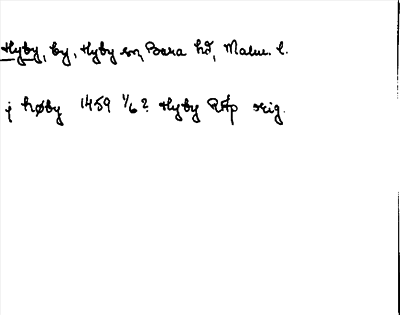 Hyby, by, Hyby sn, Bara hd, Malm. l.
j høby 1459 1/6 ? Hyby RAp orig.